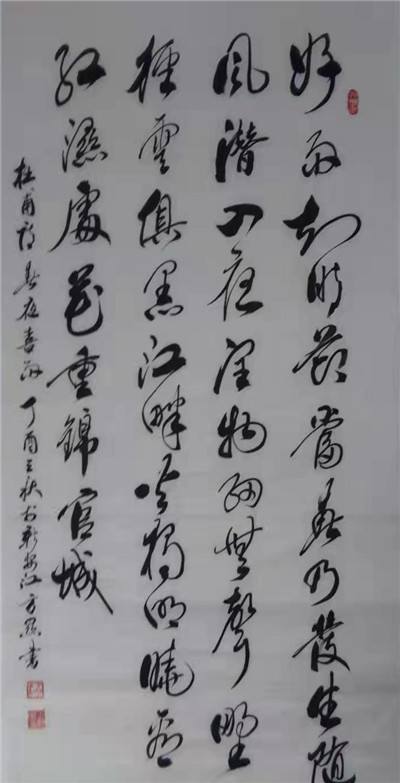 好雨知時節當春乃發生隨
風潛入夜潤物細無聲野
徑雲俱黑江畔火獨明曉看
紅濕處花重錦官城
杜甫詩春夜喜雨丁酉之秋於新安江方書